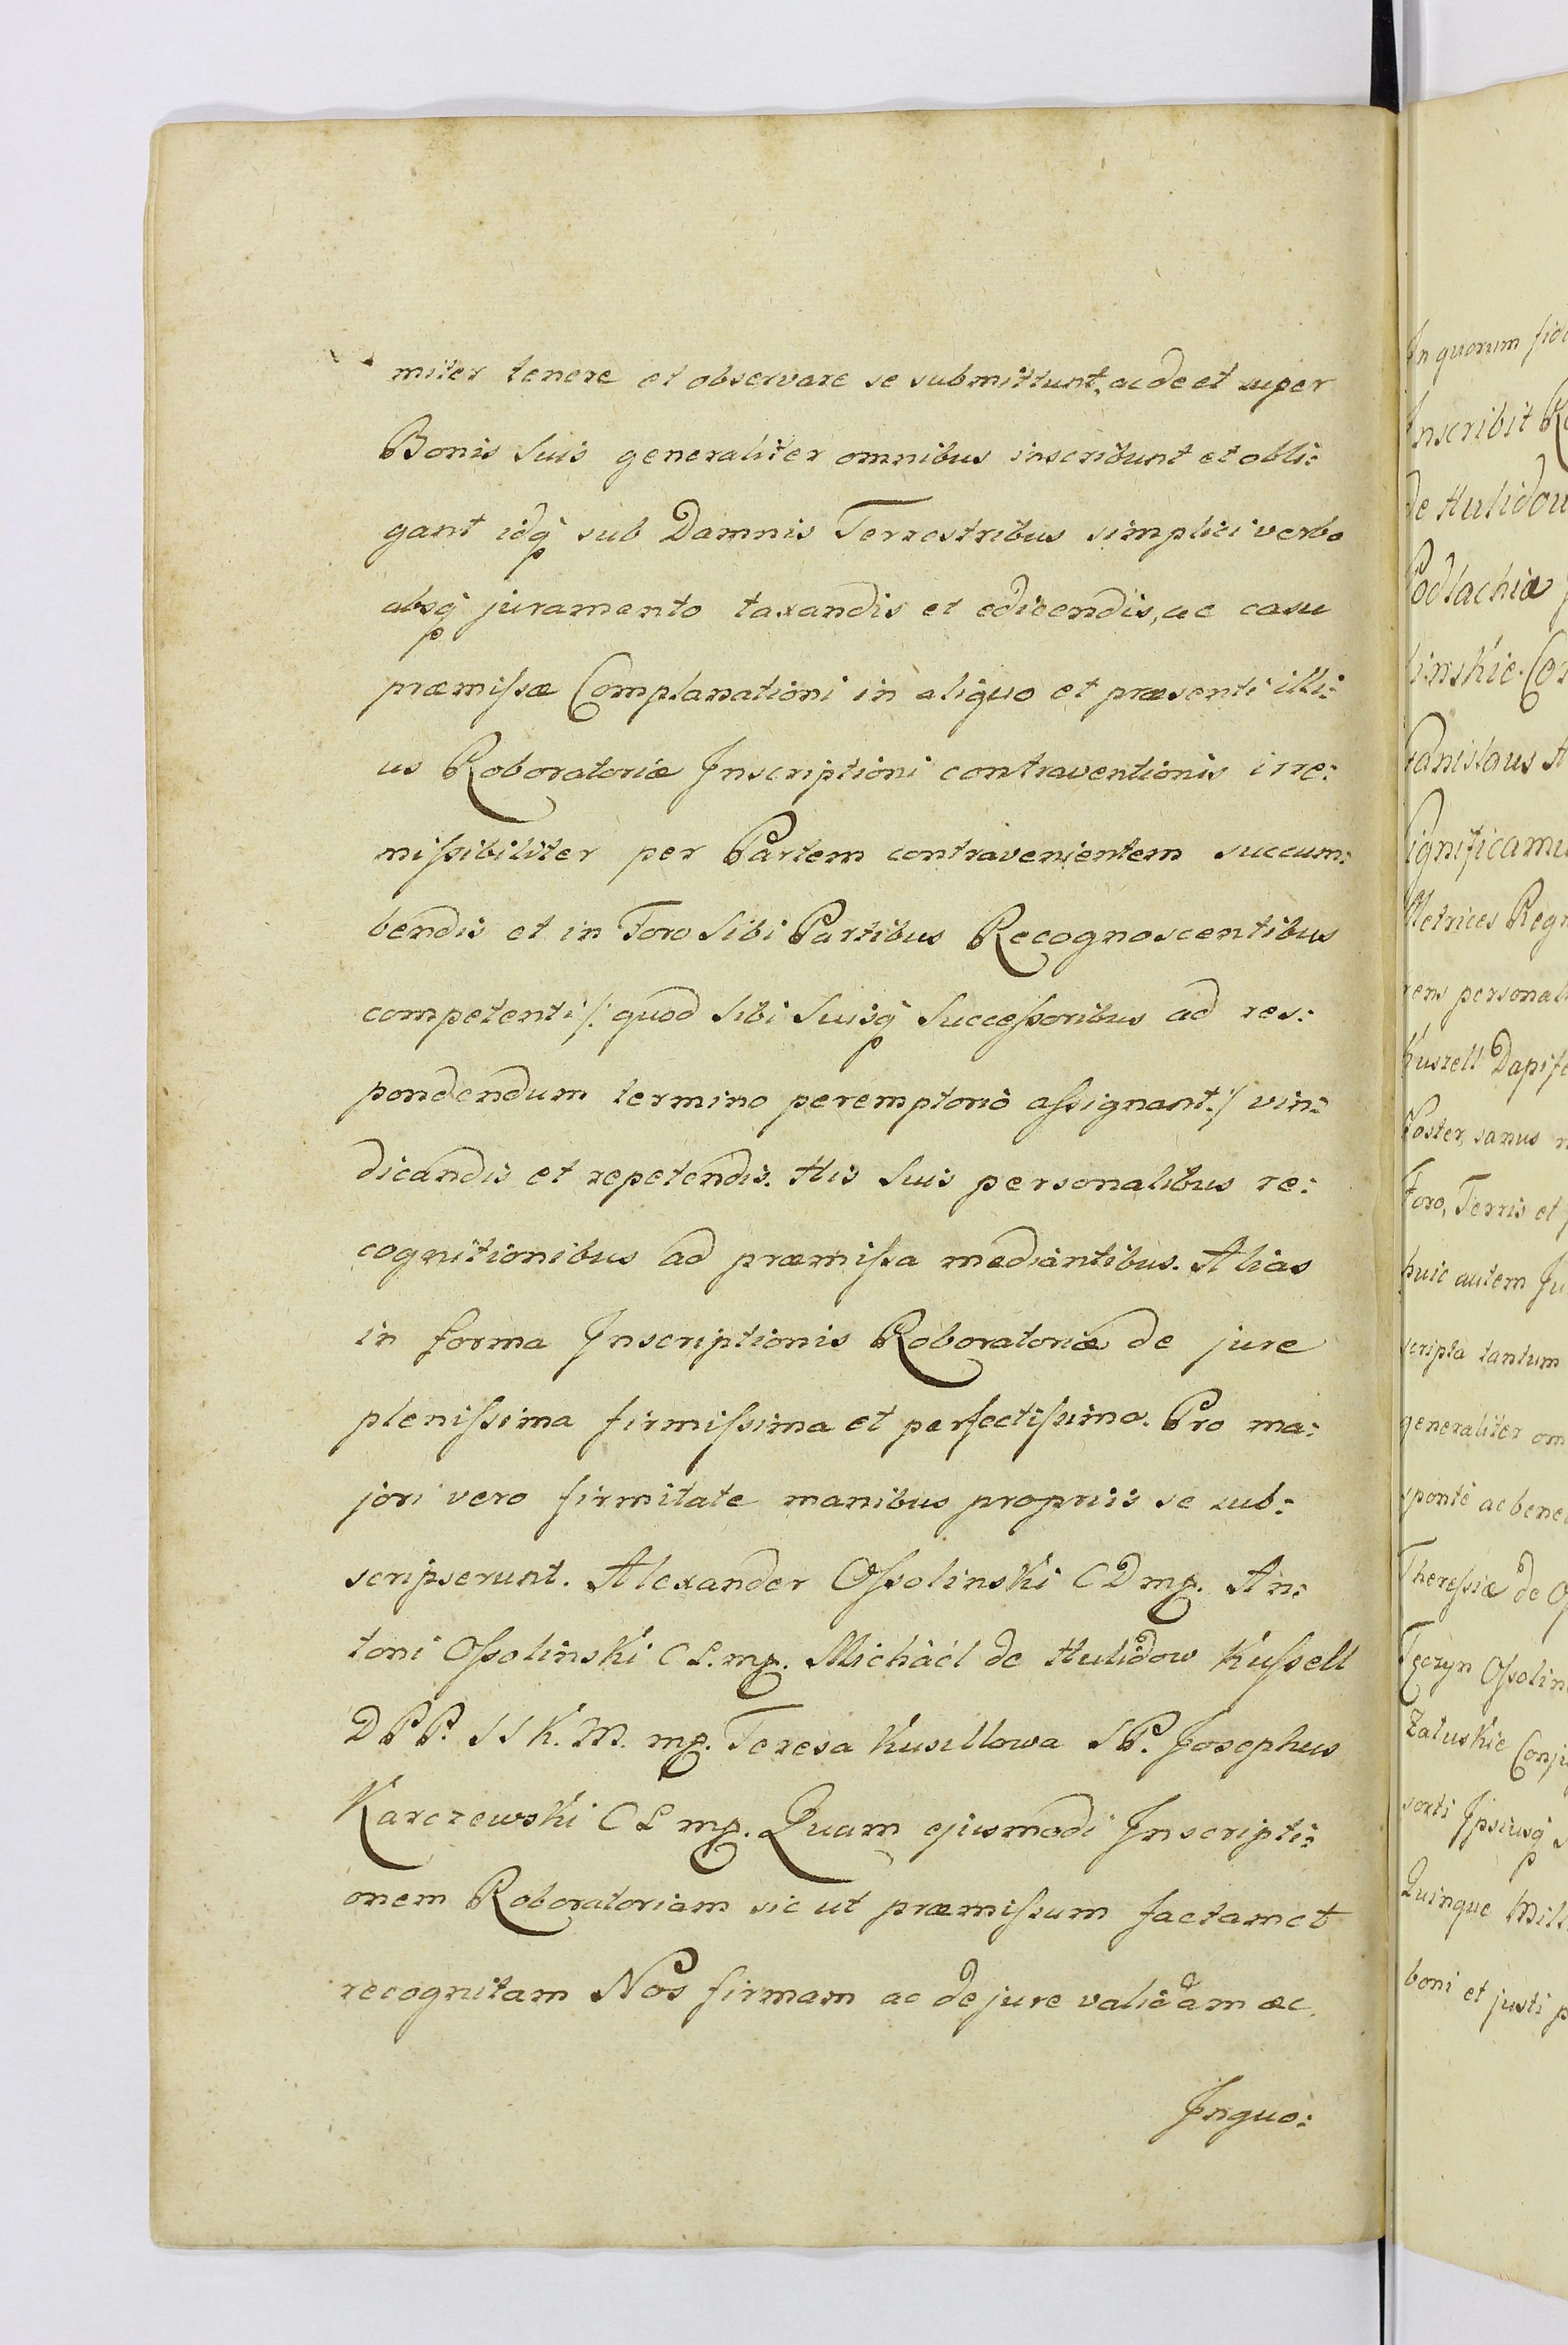 miter tenere et observare se submittunt, ac de et super
Bonis suis generaliter omnibus inscribunt et obli:
gant idq̃ sub Damnis Terrestribus simplici verbo
absq̃ juramento taxandis et edicendis, ac casu
præmiſsæ Complanationi in aliquo et præsenti illi:
us Roboratoriæ Inscriptioni contraventionis irre:
miſsibiliter per Partem contravenientem succum:
bendis et in Foro sibi Partibus Recognoscentibus
competenti /: quod sibi suisq̃ Succeſsoribus ad res:
pondendum termino peremptorio aſsignant :/ vin:
dicandis et repetendis. His suis personalibus re:
cognitionibus ad præmiſsa mediantibus. Alias
in forma Inscriptionis Roboratoriæ de jure
pleniſsima firmiſsima et perfectiſsima. Pro ma:
jori vero firmitate manibus propriis se sub:
scripserunt. Alexander Oſsolinski C D mp. An:
toni Oſsolinski C L. mp. Michaël de Hulidow Kuſsell
D P P. S S K. M. mp. Teresa Kusellowa S P. Josephus
Karczewski C L mp. Quam ejusmodi Inscripti:
onem Roboratoriam sic ut præmiſsum factam et
recognitam Nos firmam ac de jure validam ac
Inquo:
In quorum fide
Inscribit
de Hulidow
Podlachiæ
linskie.
Stanislaus
Significamu
Metrices Reg
rens personali
Kuszell Dapife
Noster, sanus
Foro, Terris et
huic autem
scripta tantum
generaliter om
sponte ac bene
Thereſsiæ de
Tęczyn Oſsolin
Załuskie Conju
sorti Ipsiusq̃
Quinque Mill
boni et justi